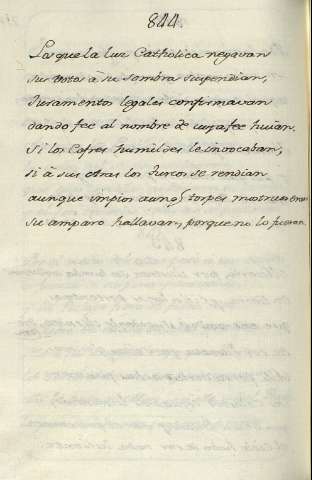 844.
Los que la luz Catholica negavan
sus votos à su sombra suspendian,
Juramentos legales confirmavan
dando fee al nombre de cuya fee huian.
Si los Cofres humildes le invocaban,
si à sus otras los Turcos se rendian
aunque impios aunq̃ torpes mostruos eran
su amparo hallavan, porque no lo fueran.